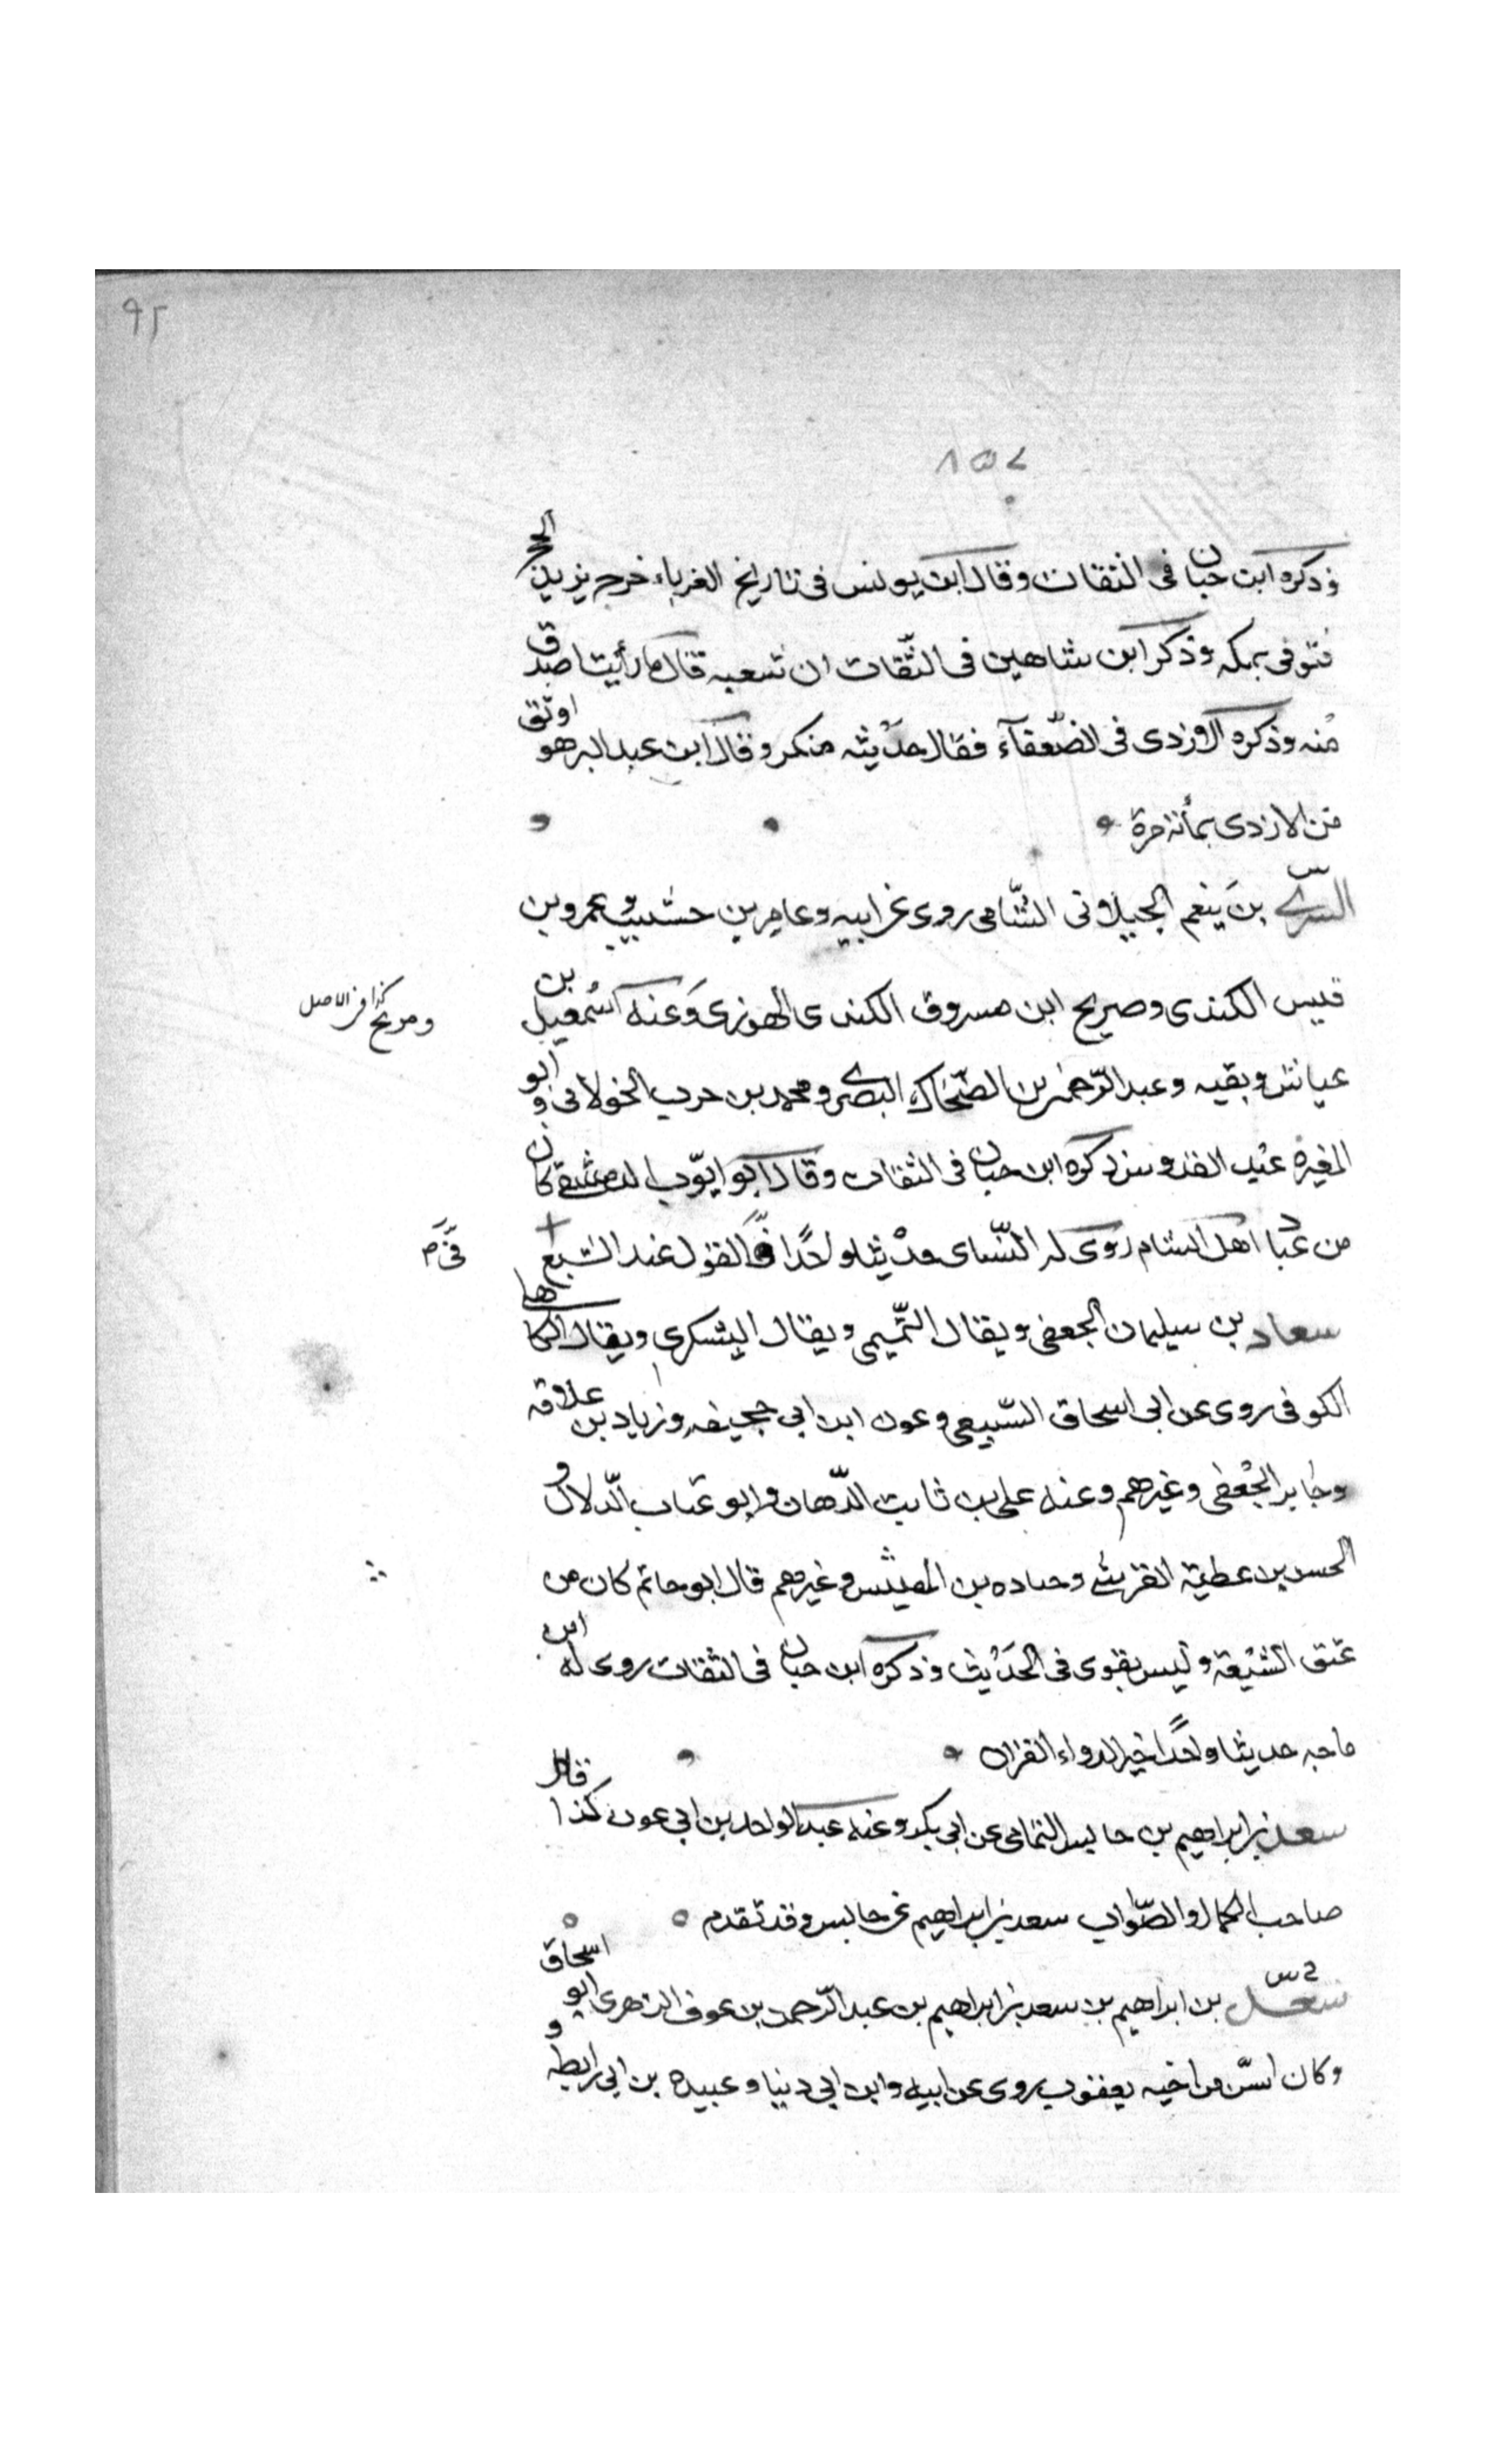 ٩٢
٨٥٧
وذكره ابن حبان فى الثقات وقال ابن يونس فى تاريخ الغرباء خرج يزيد الحج
فتوفى بمكه وذكر ابن شاهين فى الثّقات ان شعبه قال ما رأيت اصدق
منه وذكره الازدى فى الضّعفآء فقال حديثه منكر وقال ابن عبد البر هو اوثق
من الازدى بمأته مرة
السرّى بن يَنعم الجبيلانى الشّامى روى عن ابيه وعامر بن حشيب وعمرو بن
قيس الكندى وصريح ابن مسروق الكندى الهوزى وعنه اسمعيل بن
ومريح كذا فى الاصل
عياش وبقيه وعبد الرّحمن بن الضّحاك البصرى ومحمد بن حرب الخولانى وابو
المغيرة عبد القدوس ذكره ابن حبان فى الثقات وقال ابو ايّوب الدمشقى كان
من عُبّاد اهل الشام روى له النّساى حديثا واحدًا فى القول عند الشبع
سعاد بن سيلمان الجعفى ويقال التّميمى ويقال اليشكرى ويقال الكاهلى
الكوفى روى عن ابى اسحاق السّبيعى وعون ابن ابى جحيفه وزياد بن علاقه
وجابر الجُعفى وغيرهم وعنه على بن ثابت الدّهان وابو عتاب الدّلال و
الحسن بن عطية القرشى وحباده بن المغيّس وغيرهم قال ابو حاتم كان من
عتق الشّيعة وليس بقوى فى الحَديث وذكره ابن حبان فى الثقات روى له ابن
ماجه حديثا واحدًا خير الدواء القران
سعد بن ابراهيم بن حابس اليمامى عن ابى بكر وعنه عبد الواحد بن ابى عون كذا قال
صاحب الكمال والصّواب سعد بن ابراهيم عن حابس وقد تقدم
خ س
سعد بن ابراهيم بن سعد بن ابراهيم بن عبد الرّحمن بن عوف الزهرى ابو اسحاق
وكان اسنّ من اخيه يعقوب روى عن ابيه وابن ابى دنيا وعبيده بن ابى رايطه و